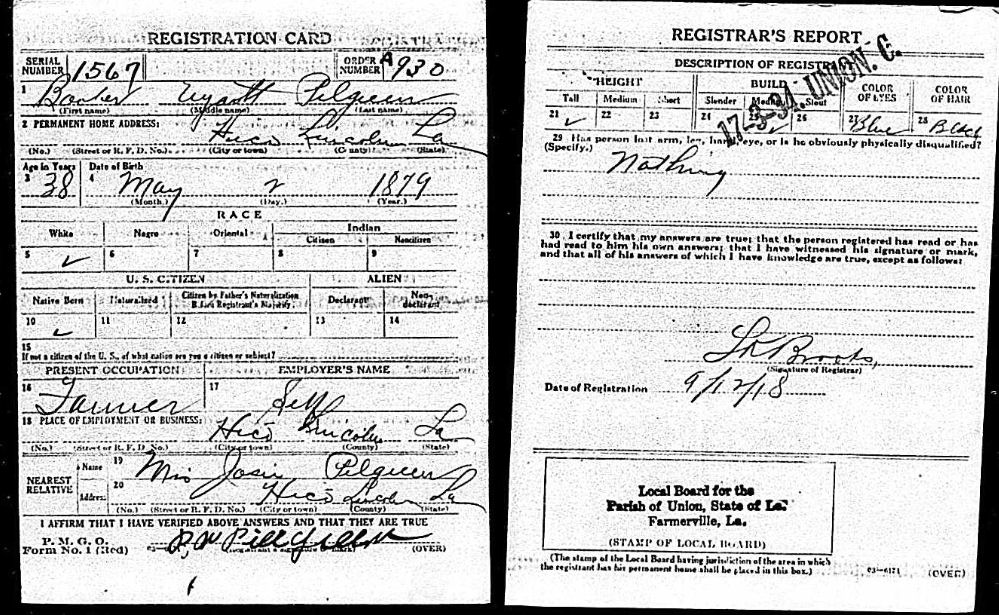 REGISTRATION CARD
SERIAL NUMBER 1567
ORDER NUMBER A930
1 Wyatt Pilgreen
(First name) (Middle name) (Last name)
2 PERMANENT HOME ADDRESS: Hico Lincoln La
(No.) (Street or R. F. D. No.) (City or town) (County) (State)
Age in Years Date of Birth
3 38 4 May 2 1879
(Month.) (Day.) (Year.)
RACE
White Negro Oriental Indian
Citizen Noncitizen
5 ✓ 6 7 8 9
U. S. CITIZEN ALIEN
Native Born Naturalized Citizen by Father's Naturalization Before Registrant's Majority Declarant Non-declarant
10 ✓ 11 12 13 14
15
If not a citizen of the U. S., of what nation are you a citizen or subject?
PRESENT OCCUPATION EMPLOYER'S NAME
16 Farmer 17 Self
18 PLACE OF EMPLOYMENT OR BUSINESS: Hico Lincoln La
(No.) (Street or R. F. D. No.) (City or town) (County) (State)
NEAREST RELATIVE Name 19 Mrs Josie Pilgreen
Address 20 Hico Lincoln La
(No.) (Street or R. F. D. No.) (City or town) (County) (State)
I AFFIRM THAT I HAVE VERIFIED ABOVE ANSWERS AND THAT THEY ARE TRUE
P. M. G. O.
Form No. 1 (Red) (OVER)
REGISTRAR'S REPORT
17-3-31. UNION. C.
DESCRIPTION OF REGISTRANT
HEIGHT BUILD COLOR OF EYES COLOR OF HAIR
Tall Medium Short Slender Medium Stout
21 ✓ 22 23 24 25 ✓ 26 27 Blue 28 Black
29 Has person lost arm, leg, hand, eye, or is he obviously physically disqualified?
(Specify.) Nothing
30 I certify that my answers are true; that the person registered has read or has
had read to him his own answers; that I have witnessed his signature or mark,
and that all of his answers of which I have knowledge are true, except as follows:
Brooks
(Signature of Registrar)
Date of Registration 9/12/18
Local Board for the
Parish of Union, State of La.
Farmerville, La.
(STAMP OF LOCAL BOARD)
(The stamp of the Local Board having jurisdiction of the area in which
the registrant has his permanent home shall be placed in this box.)
03-6171 (OVER)